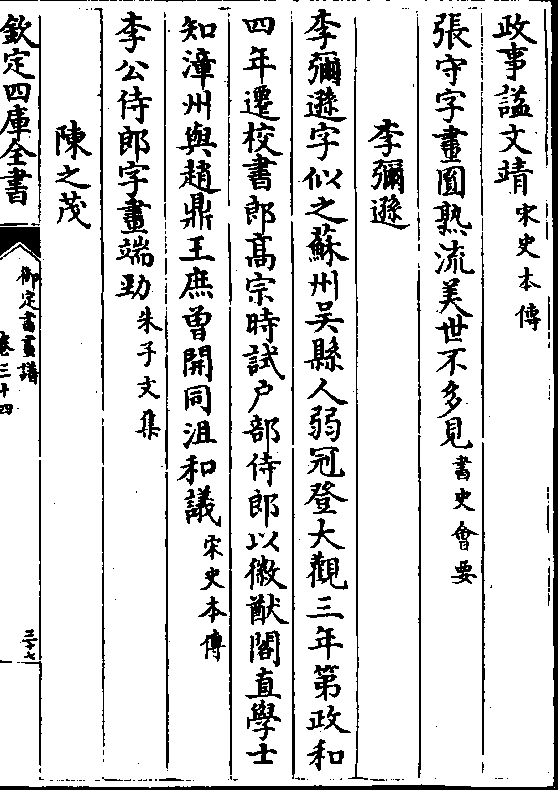 政事諡文靖宋史本傳
張守字畫圓熟流美世不多見書史會要
李彌遜
李彌遜字似之蘇州吳縣人弱冠登大觀三年第政和
四年遷校書郎髙宗時試户部侍郎以徽猷閣直學士
知漳州與趙鼎王庶曽開同沮和議宋史本傳
李公侍郎字畫端勁朱子文集
陳之茂
欽定四庫全書
御定書畫譜
卷三十四
三十七